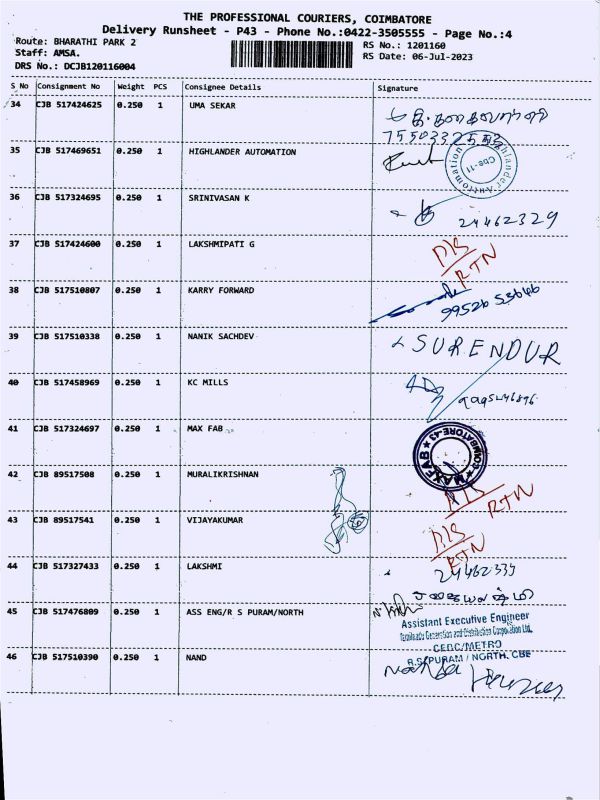 THE PROFESSIONAL COURIERS, COIMBATORE
Delivery Runsheet - P43 - Phone No.:0422-3505555 - Page No.:4
Route: BHARATHI PARK 2
Staff: AMSA.
DRS No.: DCJB120116004
RS No.: 1201160
RS Date: 06-Jul-2023
S No Consignment No Weight PCS Consignee Details Signature
34 CJB 517424625 0.250 1 UMA SEKAR
35 CJB 517469651 0.250 1 HIGHLANDER AUTOMATION
Highlander Automation
Cbe-11
36 CJB 517324695 0.250 1 SRINIVASAN K
24462329
37 CJB 517424600 0.250 1 LAKSHMIPATI G
D/S
RTN
38 CJB 517510807 0.250 1 KARRY FORWARD
99526 53646
39 CJB 517510338 0.250 1 NANIK SACHDEV
SURENDUR
40 CJB 517458969 0.250 1 KC MILLS
41 CJB 517324697 0.250 1 MAX FAB
MAX FAB
COIMBATORE-43
42 CJB 89517508 0.250 1 MURALIKRISHNAN
D/S
RTN
43 CJB 89517541 0.250 1 VIJAYAKUMAR
D/S
RTN
44 CJB 517327433 0.250 1 LAKSHMI
45 CJB 517476809 0.250 1 ASS ENG/R S PURAM/NORTH
Assistant Executive Engineer
Tamilnadu Generation and Distribution Corporation Ltd.,
CEDC/METRO
R.S.PURAM / NORTH, CBE
46 CJB 517510390 0.250 1 NAND